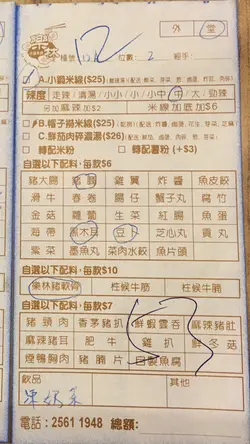 外 堂
檯號 12 位數: 2 經手:
A.小鍋米線($25)
辣度: 走辣 / 清湯 / 小小 / 小 / 小中 / 中 / 大 / 勁辣
另加麻辣加$2 米線加底加$6
B.帽子撈米線($25)
C.鮮茄肉碎濃湯($26)
轉配米粉 轉配薯粉 (+$3)
自選以下配料,每款$6
豬大腸 豬紅 雞翼 炸醬 魚皮餃
滑牛 春卷 腸仔 蟹子丸 腐竹
金菇 蘿蔔 生菜 紅腸 魚蛋
海帶 黑木耳 豆卜 芝心丸 貢丸
紫菜 墨魚丸 菜肉水餃 魚片頭
自選以下配料,每款$10
樂林豬軟骨 柱候牛筋 柱候牛腩
自選以下配料,每款$7
豬頸肉 香茅豬扒 鮮蝦雲吞 麻辣豬肚
麻辣豬耳 肥牛 雞扒 鮮冬菇
煙鴨胸肉 豬腩片 自製魚腐
飲品 其他
電話:2561 1948 總額: